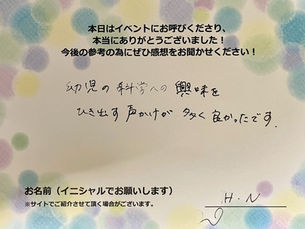 本日はイベントにお呼びくださり、
本当にありがとうございました！
今後の参考の為にぜひ感想をお聞かせください！
幼児の科学への興味を
ひき出す声かけが多く良かったです。
お名前（イニシャルでお願いします）
※サイトでご紹介させて頂く場合がございます。
H・N